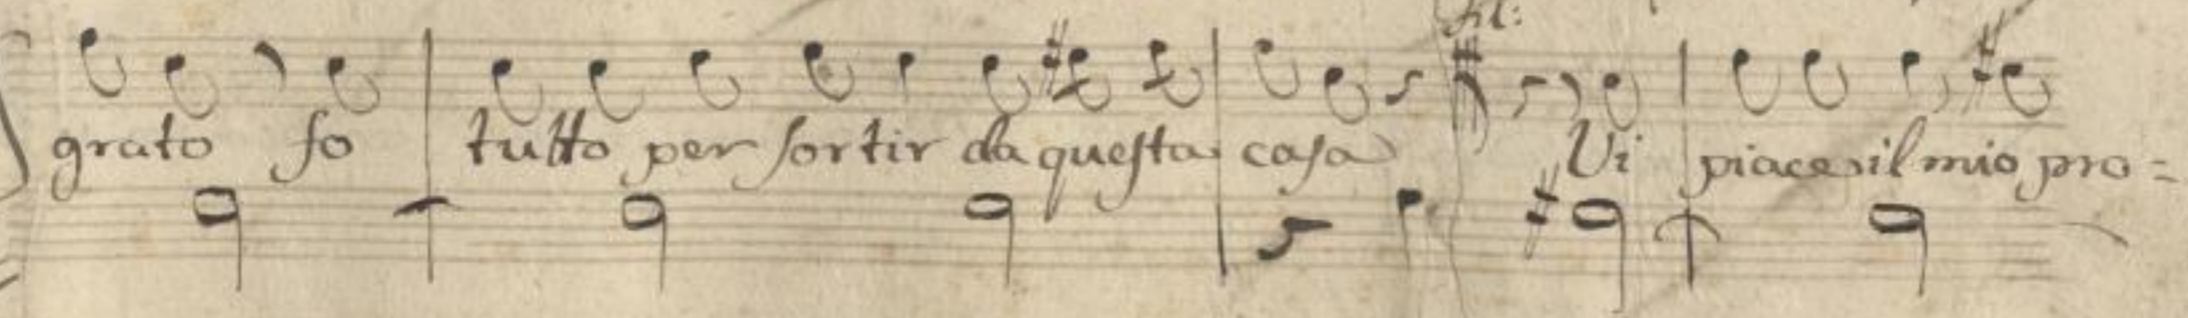 fil:
grato fo tutto per sortir da questa casa Vi piace il mio pro=